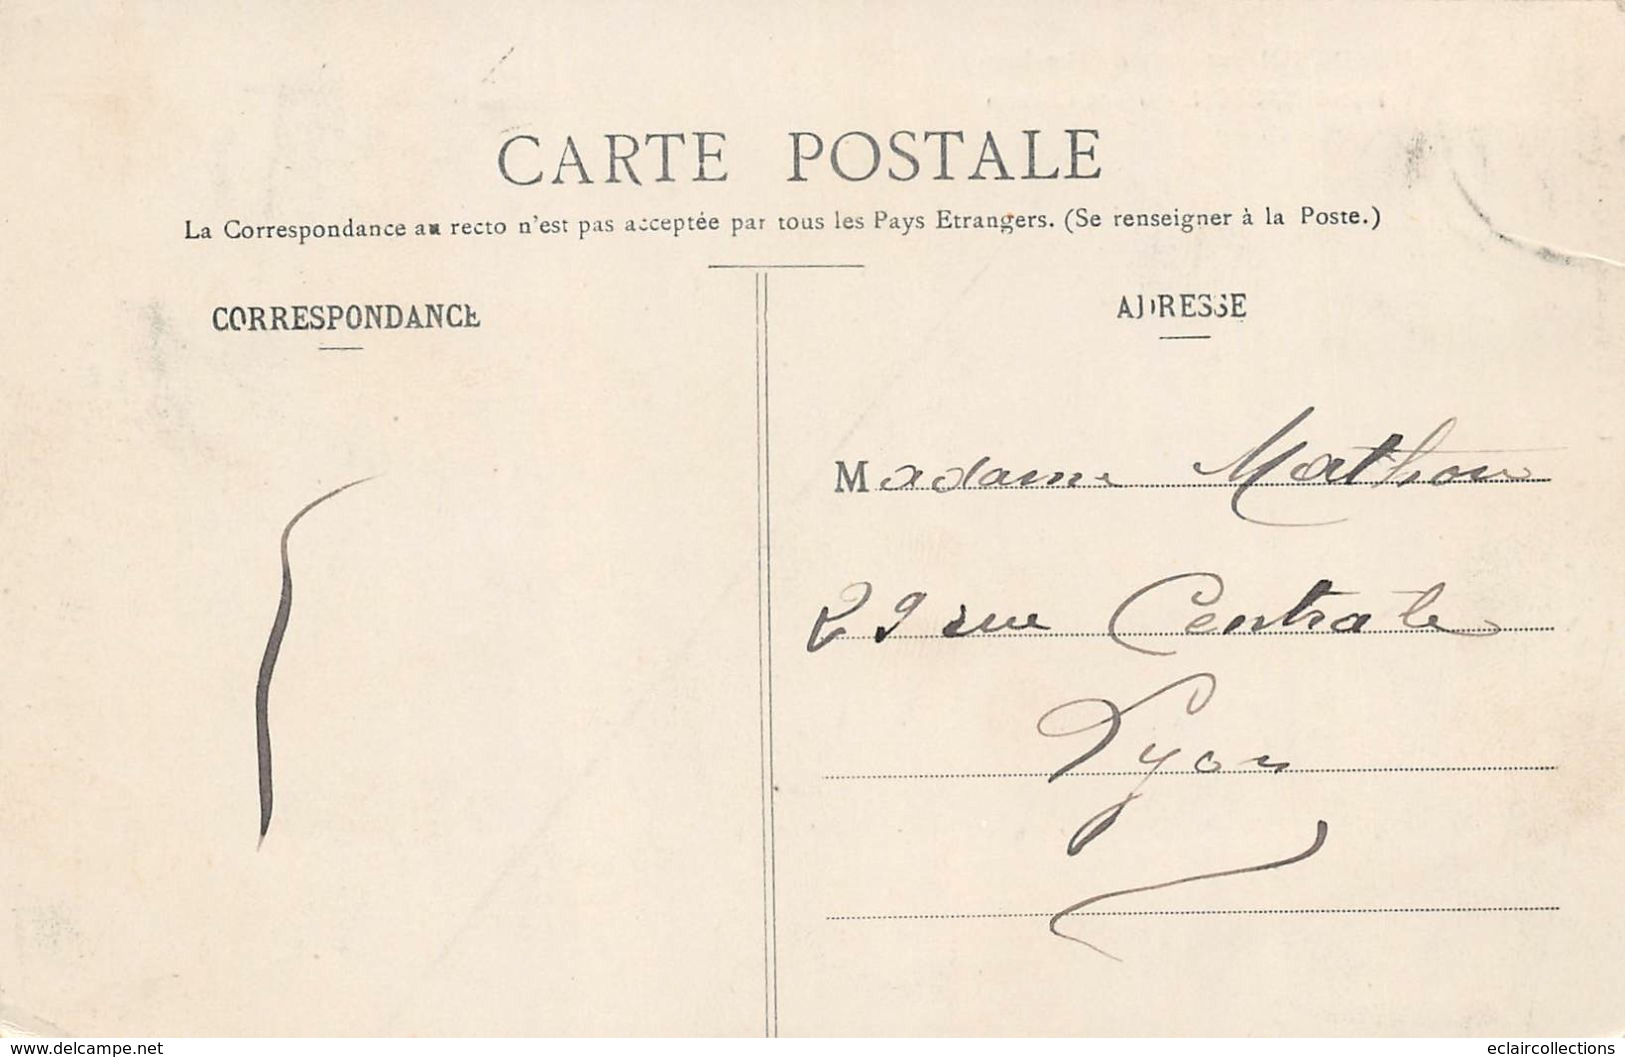 CARTE POSTALE
La Correspondance au recto n'est pas acceptée par tous les Pays Etrangers. (Se renseigner à la Poste.)
CORRESPONDANCE
ADRESSE
Madame Mathon
29 rue Centrale
Lyon
www.delcampe.net
eclaircollections